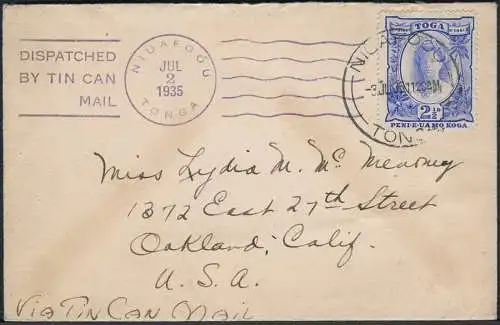 DISPATCHED
BY TIN CAN
MAIL
NIUAFOOU
JUL
2
1935
TONGA
TOGA
2½
PENI-E-UA MO KOGA
Miss Lydia M. McMearney
1372 East 27th Street
Oakland, Calif.
U. S. A.
Via Tin Can Mail